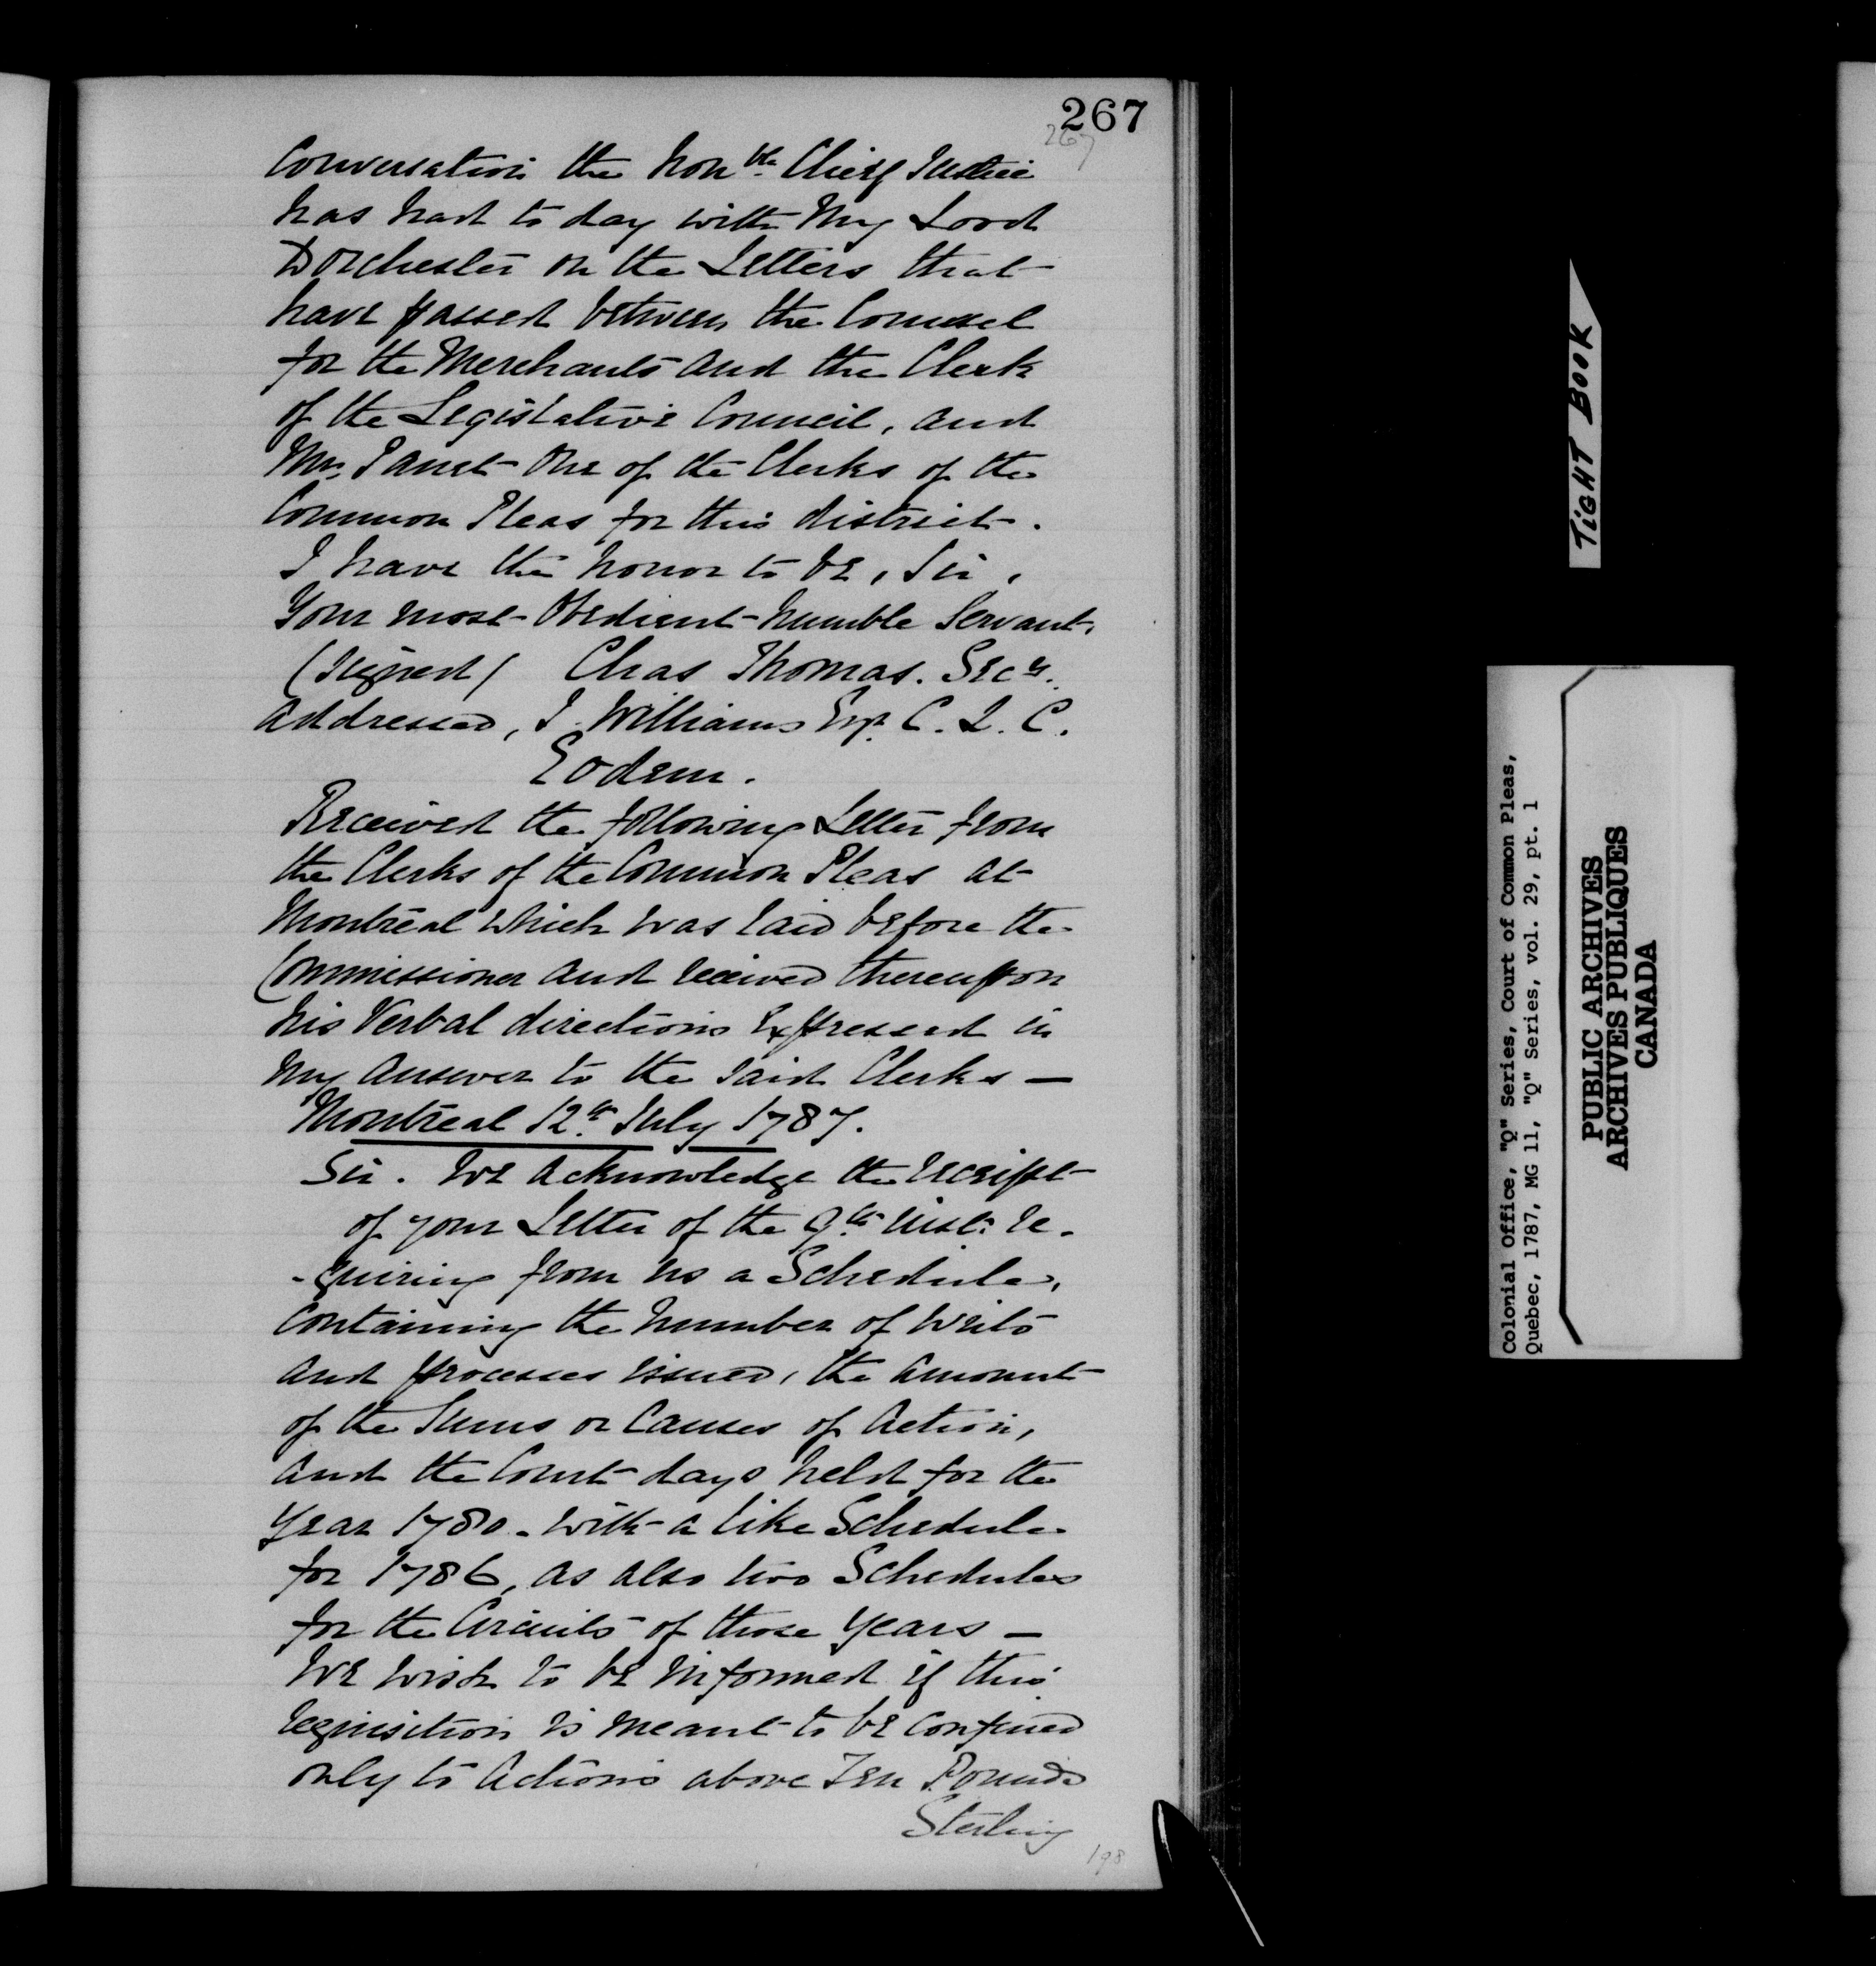 267
267
Conversation the Honble Chief Justice
has had to day with My Lord
Dorchester on the Letters that
have passed between the Counsel
for the Merchants and the Clerk
of the Legislative Council, and
Mr. Panet One of the Clerks of the
Common Pleas for this district.
I have the honor to be, Sir,
Your most Obedient humble Servant.
(Signed) Chas Thomas. Secy.
Addressed, J. Williams Esqr. C. L. C.
Eodem.
Received the following Letter from
the Clerks of the Common Pleas at
Montreal which was laid before the
Commissioner and received thereupon
his Verbal directions Expressed in
my Answer to the said Clerks —
Montreal 12th July 1787.
Sir. We Acknowledge the receipt
of your Letter of the 9th inst: re-
-quiring from us a Schedule,
Containing the Number of Writs
and processes issued, the Amount
of the Sums or Causes of Action,
and the Court days held for the
Year 1780 - with a like Schedule
for 1786, as also two Schedules
for the Circuits of those Years —
We wish to be informed if this
requisition is meant to be confined
only to Actions above Ten Pounds
Sterling
198
TIGHT BOOK
Colonial Office, "Q" Series, Court of Common Pleas,
Quebec, 1787, MG 11, "Q" Series, vol. 29, pt. 1
PUBLIC ARCHIVES
ARCHIVES PUBLIQUES
CANADA